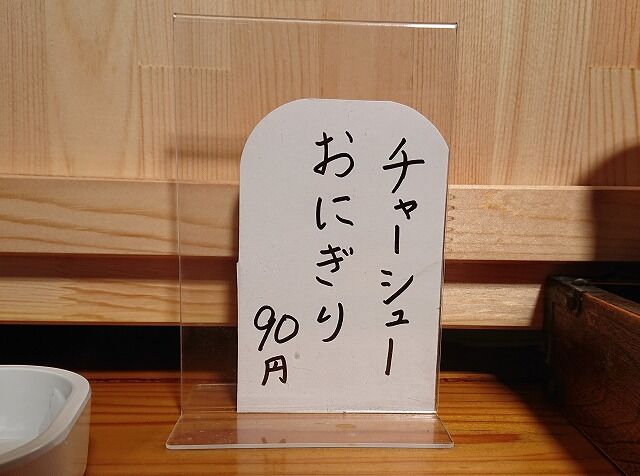 チャーシュー
おにぎり
90円